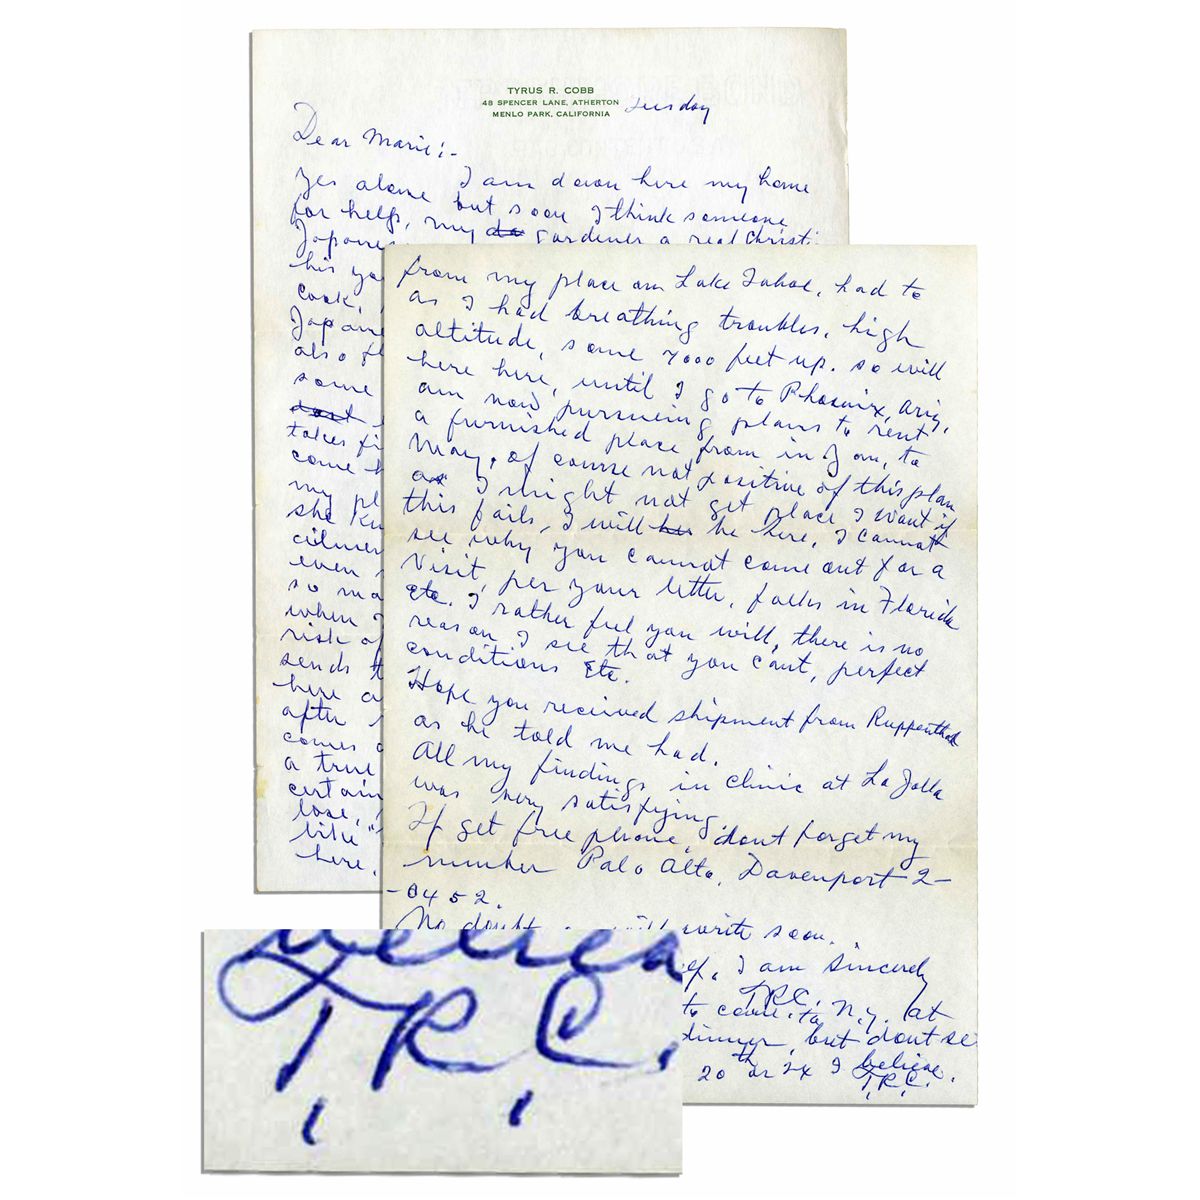 TYRUS R. COBB
48 SPENCER LANE, ATHERTON
MENLO PARK, CALIFORNIA
Tuesday
Dear Marie:-
Yes alone I am down here my home
for help, but soon I think someone
my gardener a real Christi
Japane
his yo
cook,
Japane
also
some
takes fi
come
my pl
she
even
so ma
when
risk of
sends t
here a
after
comes
a true
certain
lose,
like
here.
from my place on Lake Tahoe, had to
as I had breathing troubles, high
altitude, some 7000 feet up. so will
here here, until I go to Phoenix, Ariz,
am now pursueing plans to rent
a furnished place from in Jan, to
May, of course not positive of this plan
as I might not get place I want if
this fails, I will be here, I cannot
see why you cannot come out for a
visit, per your letter, folks in Florida
etc. I rather feel you will, there is no
reason I see that you cant, perfect
conditions etc.
Hope you received shipment from Ruppenthal
as he told me had.
All my findings in clinic at La Jolla
was very satisfying.
If get free phone, dont forget my
number Palo Alto, Davenport 2-
-0452.
No doubt write soon.
I am sincerely
T.R.C.
to come to N.Y. at
dinner, but dont se
20th or 24 I believe.
T.R.C.
believe
T.R.C.